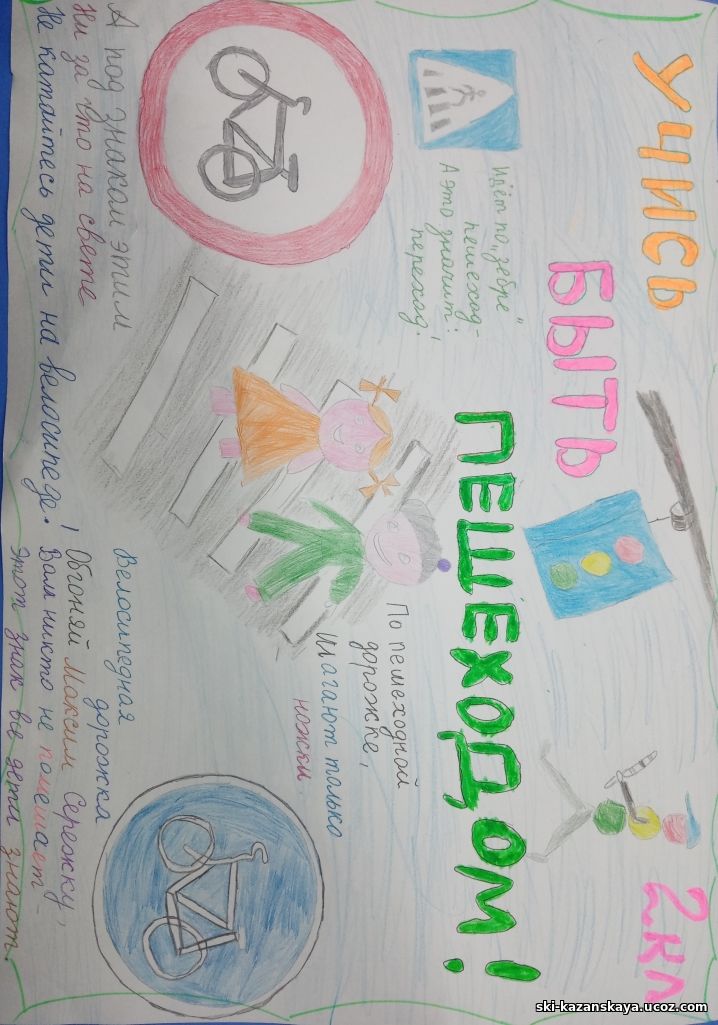 УЧИСЬ
БЫТЬ
ПЕШЕХОДОМ!
2кл
Идёт по „зебре"
пешеход -
А это значит:
переход!
По пешеходной
дорожке,
Шагают только
ножки.
А под знаком этим
Ни за что на свете
Не катайтесь дети на велосипеде!
Велосипедная
дорожка
Обгоняй Максим Сережку,
Вам никто не помешает -
Этот знак все дети знают.
ski-kazanskaya.ucoz.com